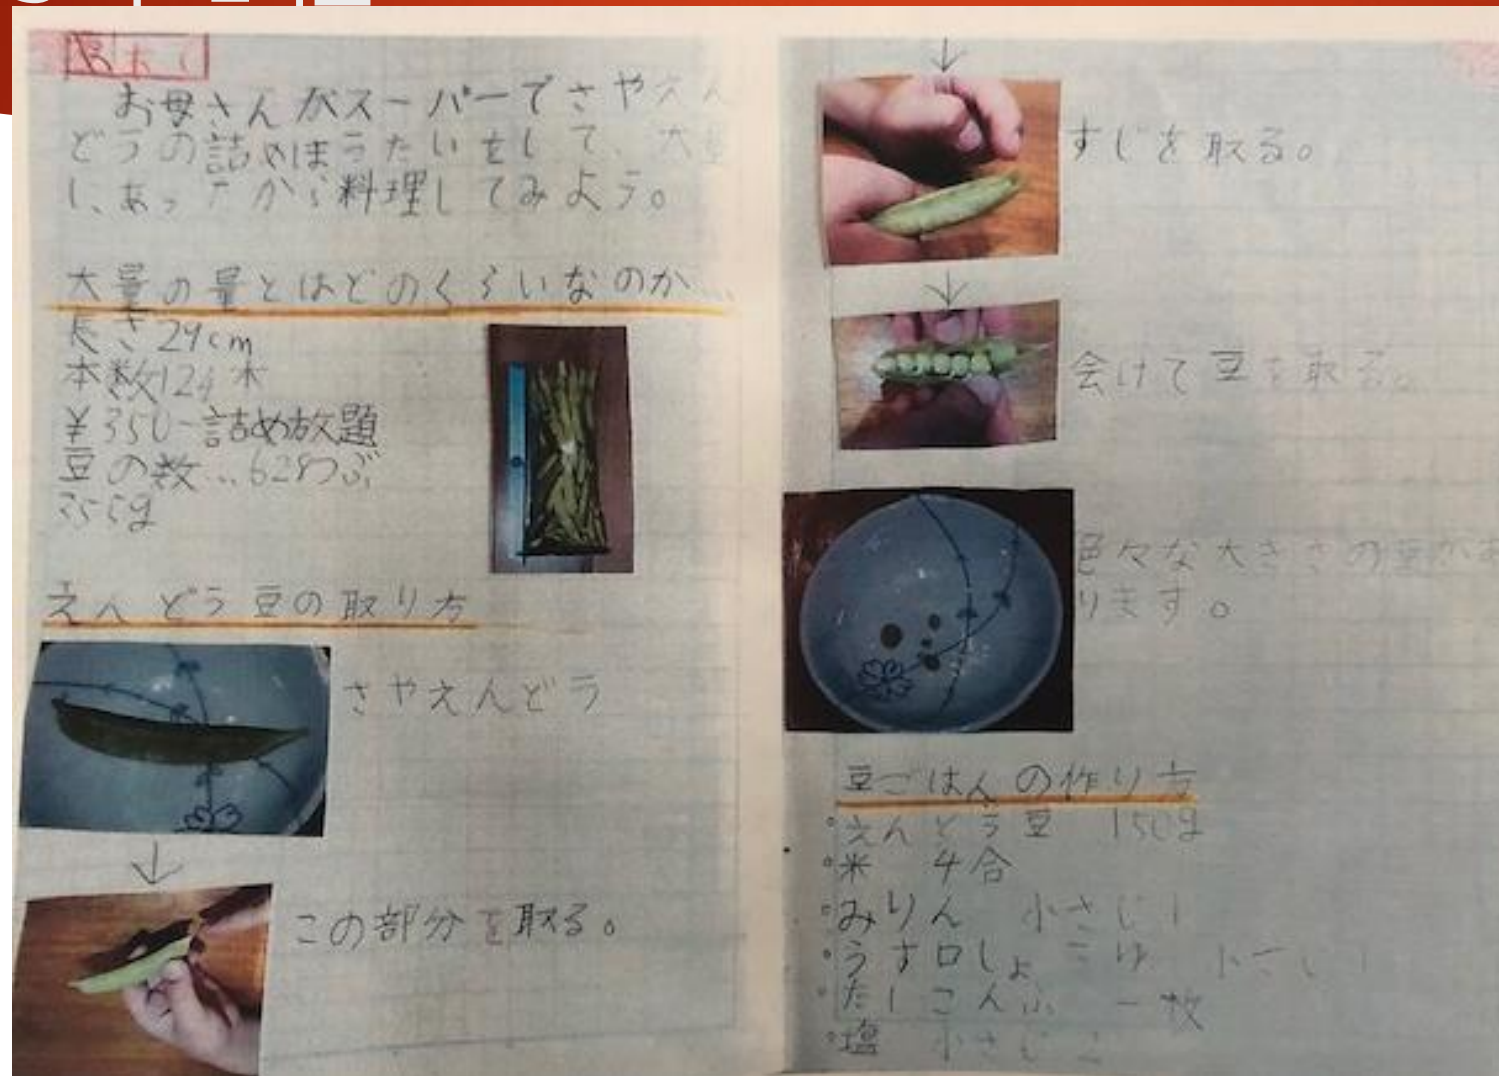 お母さんがスーパーでさやえん
どうの詰めほうたいをして、大量
に、あったから料理してみよう。
大量の量とはどのくらいなのか…
長さ29cm
本数124本
¥350-詰め放題
豆の数…628つぶ
えんどう豆の取り方
さやえんどう
↓
この部分を取る。
↓
すじを取る。
↓
会けて豆を取る。
色々な大きさの豆があ
ります。
豆ごはんの作り方
・えんどう豆 150g
・米 4合
・みりん 小さじ1
・うす口しょうゆ 小さじ1
・だしこんぶ 一枚
・塩 小さじ